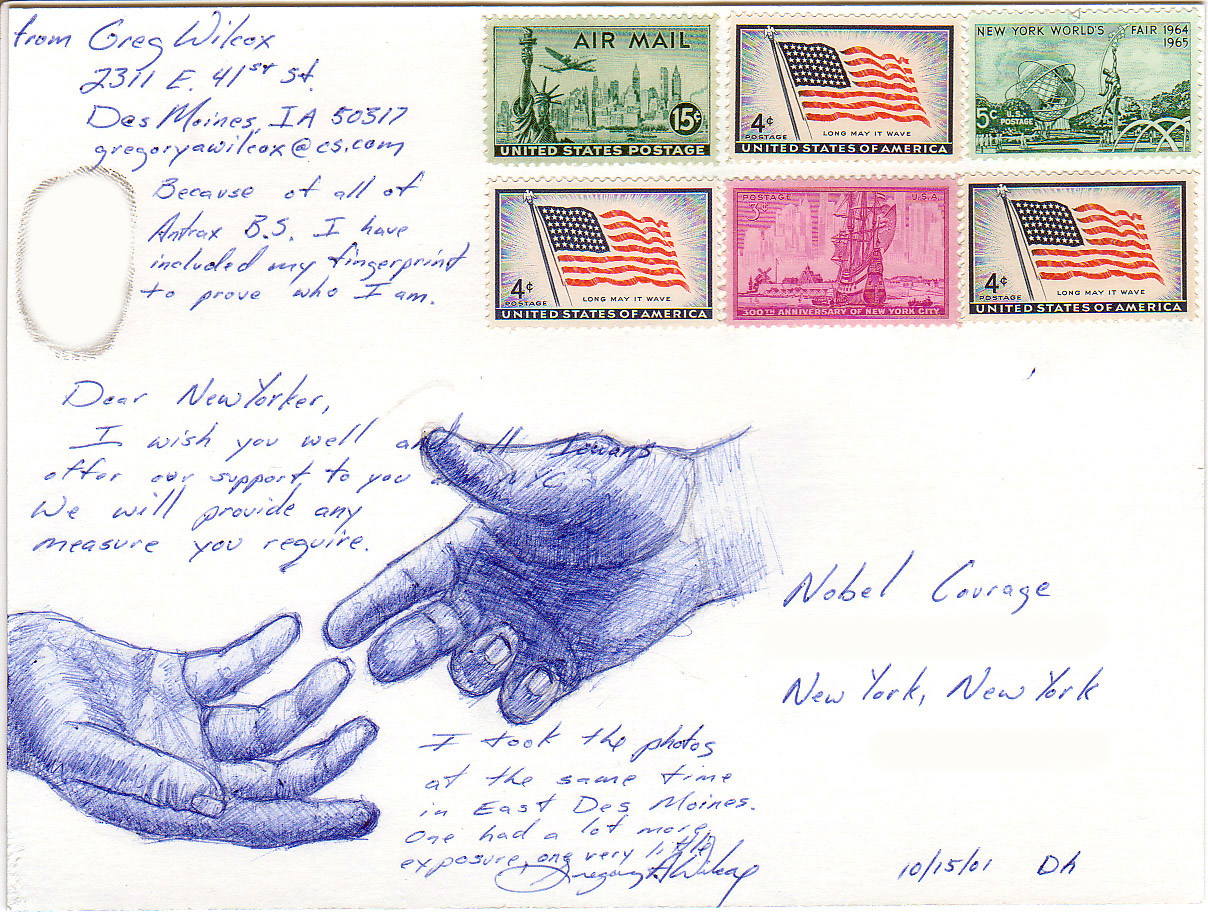 from Greg Wilcox
2311 E. 41st St.
Des Moines, IA 50317
gregoryawilcox@cs.com
Because of all of
Antrax B.S. I have
included my fingerprint
to prove who I am.
AIR MAIL
15¢
UNITED STATES POSTAGE
4¢
POSTAGE
LONG MAY IT WAVE
UNITED STATES OF AMERICA
NEW YORK WORLD'S FAIR 1964
1965
5¢
U.S.
POSTAGE
4¢
POSTAGE
LONG MAY IT WAVE
UNITED STATES OF AMERICA
POSTAGE U.S.A.
3¢
300TH ANNIVERSARY OF NEW YORK CITY
4¢
POSTAGE
LONG MAY IT WAVE
UNITED STATES OF AMERICA
Dear New Yorker,
I wish you well and all Iowans
offer our support to you NYC.
We will provide any
measure you require.
Nobel Courage
New York, New York
I took the photos
at the same time
in East Des Moines.
One had a lot more
exposure, one very little
Gregory A Wilcox
10/15/01 Dh